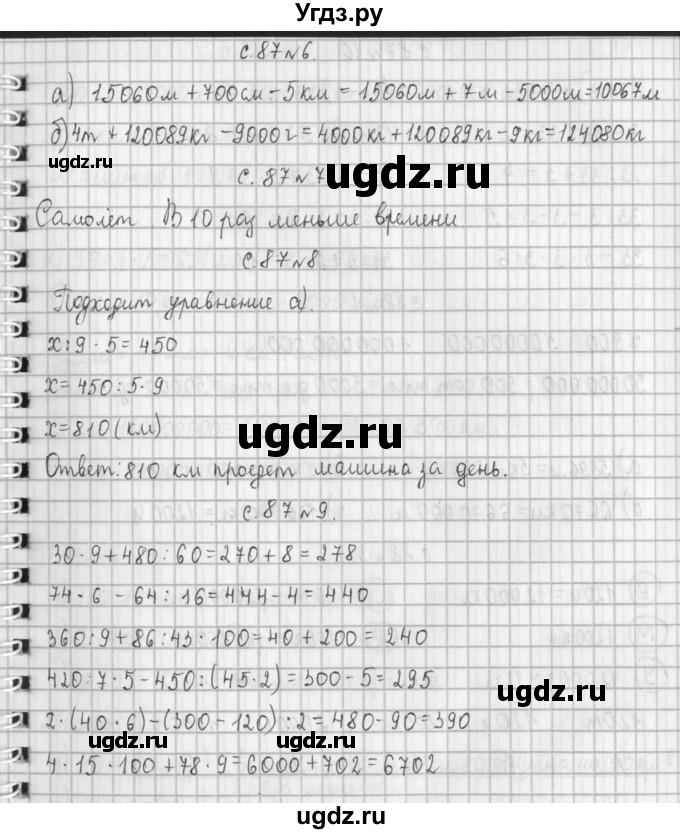 Угдз.ру
с.87 №6.
а) 15060м + 700см - 5км = 15060м + 7м - 5000м = 10067м
б) 4т + 120089кг - 9000г = 4000кг + 120089кг - 9кг = 124080кг
ugdz.ru
ugdz.ru
с.87 №7
Самолёт. В 10 раз меньше времени.
с.87 №8.
Подходит уравнение а).
х : 9 · 5 = 450
х = 450 : 5 · 9
х = 810 (км)
ugdz.ru
Ответ: 810 км проедет машина за день.
с.87 №9.
30 · 9 + 480 : 60 = 270 + 8 = 278
74 · 6 - 64 : 16 = 444 - 4 = 440
360 : 9 + 86 : 43 · 100 = 40 + 200 = 240
420 : 7 · 5 - 450 : (45 · 2) = 300 - 5 = 295
ugdz.ru
2 · (40 · 6) - (300 - 120) : 2 = 480 - 90 = 390
ugdz.ru ugdz.ru
4 · 15 · 100 + 78 · 9 = 6000 + 702 = 6702
ugdz.ru